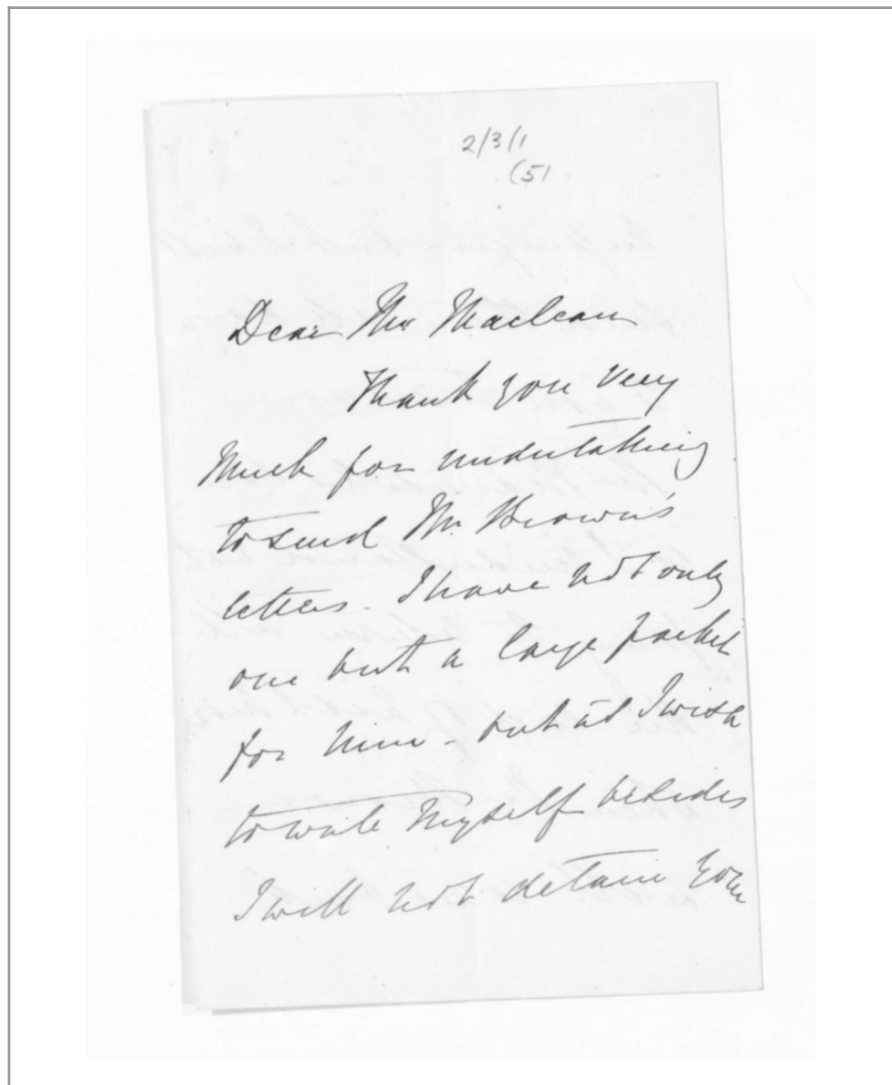 2/3/1
(5)
Dear Mr Maclean
Thank you very
Much for undertaking
to send Mr Brown's
letters. I have not only
one but a large packet
for him - but as I wish
to write Myself besides
I will not detain your